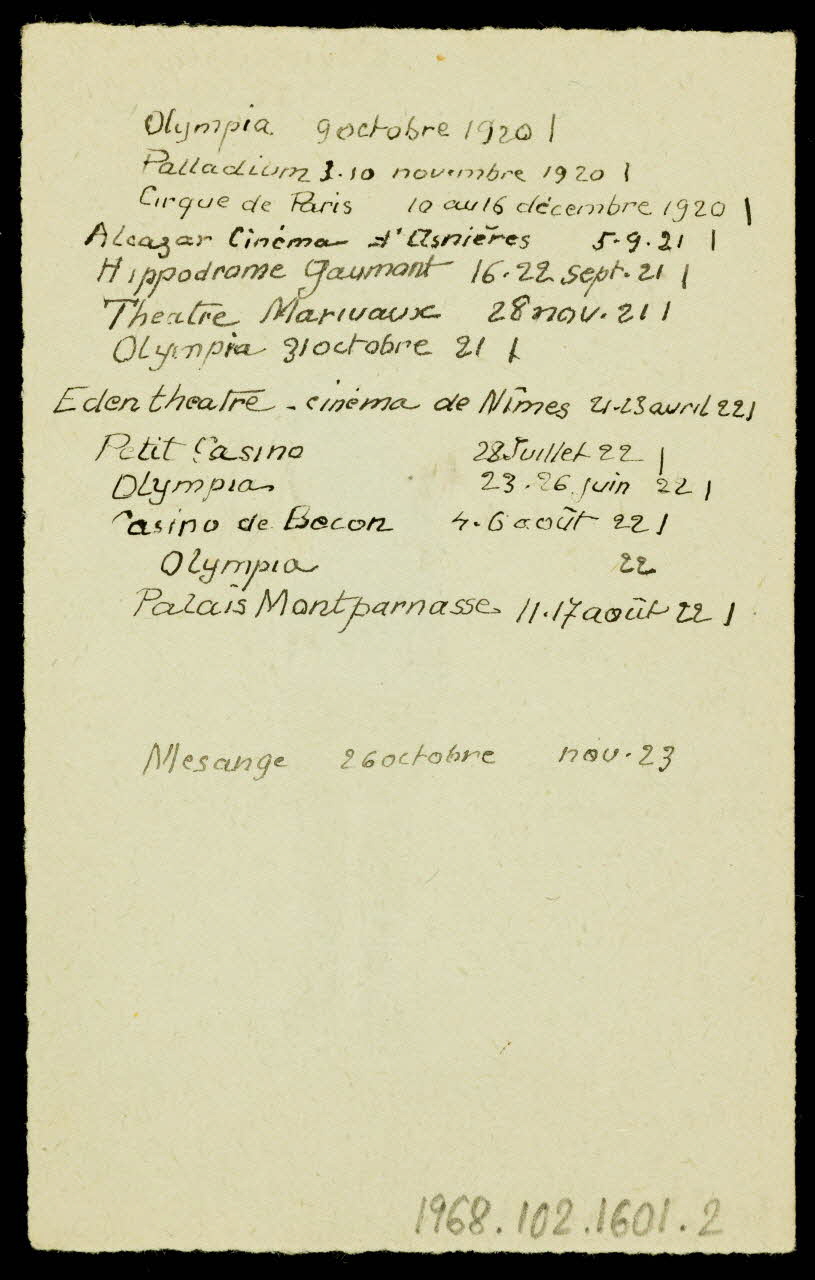 Olympia 9 octobre 1920 |
Palladium 3.10 novembre 1920 |
Cirque de Paris 10 au 16 décembre 1920 |
Alcazar Cinéma d'Asnières 5.9.21 |
Hippodrome Gaumont 16.22 sept. 21 |
Theatre Marivaux 28 nov. 21 |
Olympia 31 octobre 21 |
Eden theatre - cinéma de Nîmes 21-23 avril 22 |
Petit Casino 28 Juillet 22 |
Olympia 23.26 juin 22 |
Casino de Becon 4.6 août 22 |
Olympia 22
Palais Montparnasse 11.17 août 22 |
Mesange 26 octobre nov. 23
1968.102.1601.2